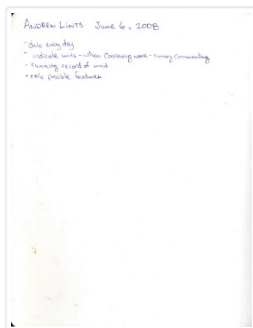 ANDREW LINTS June 6, 2008
- date every day
- indicate units - when continuing work - running commentary
- running record of unit
- note possible features